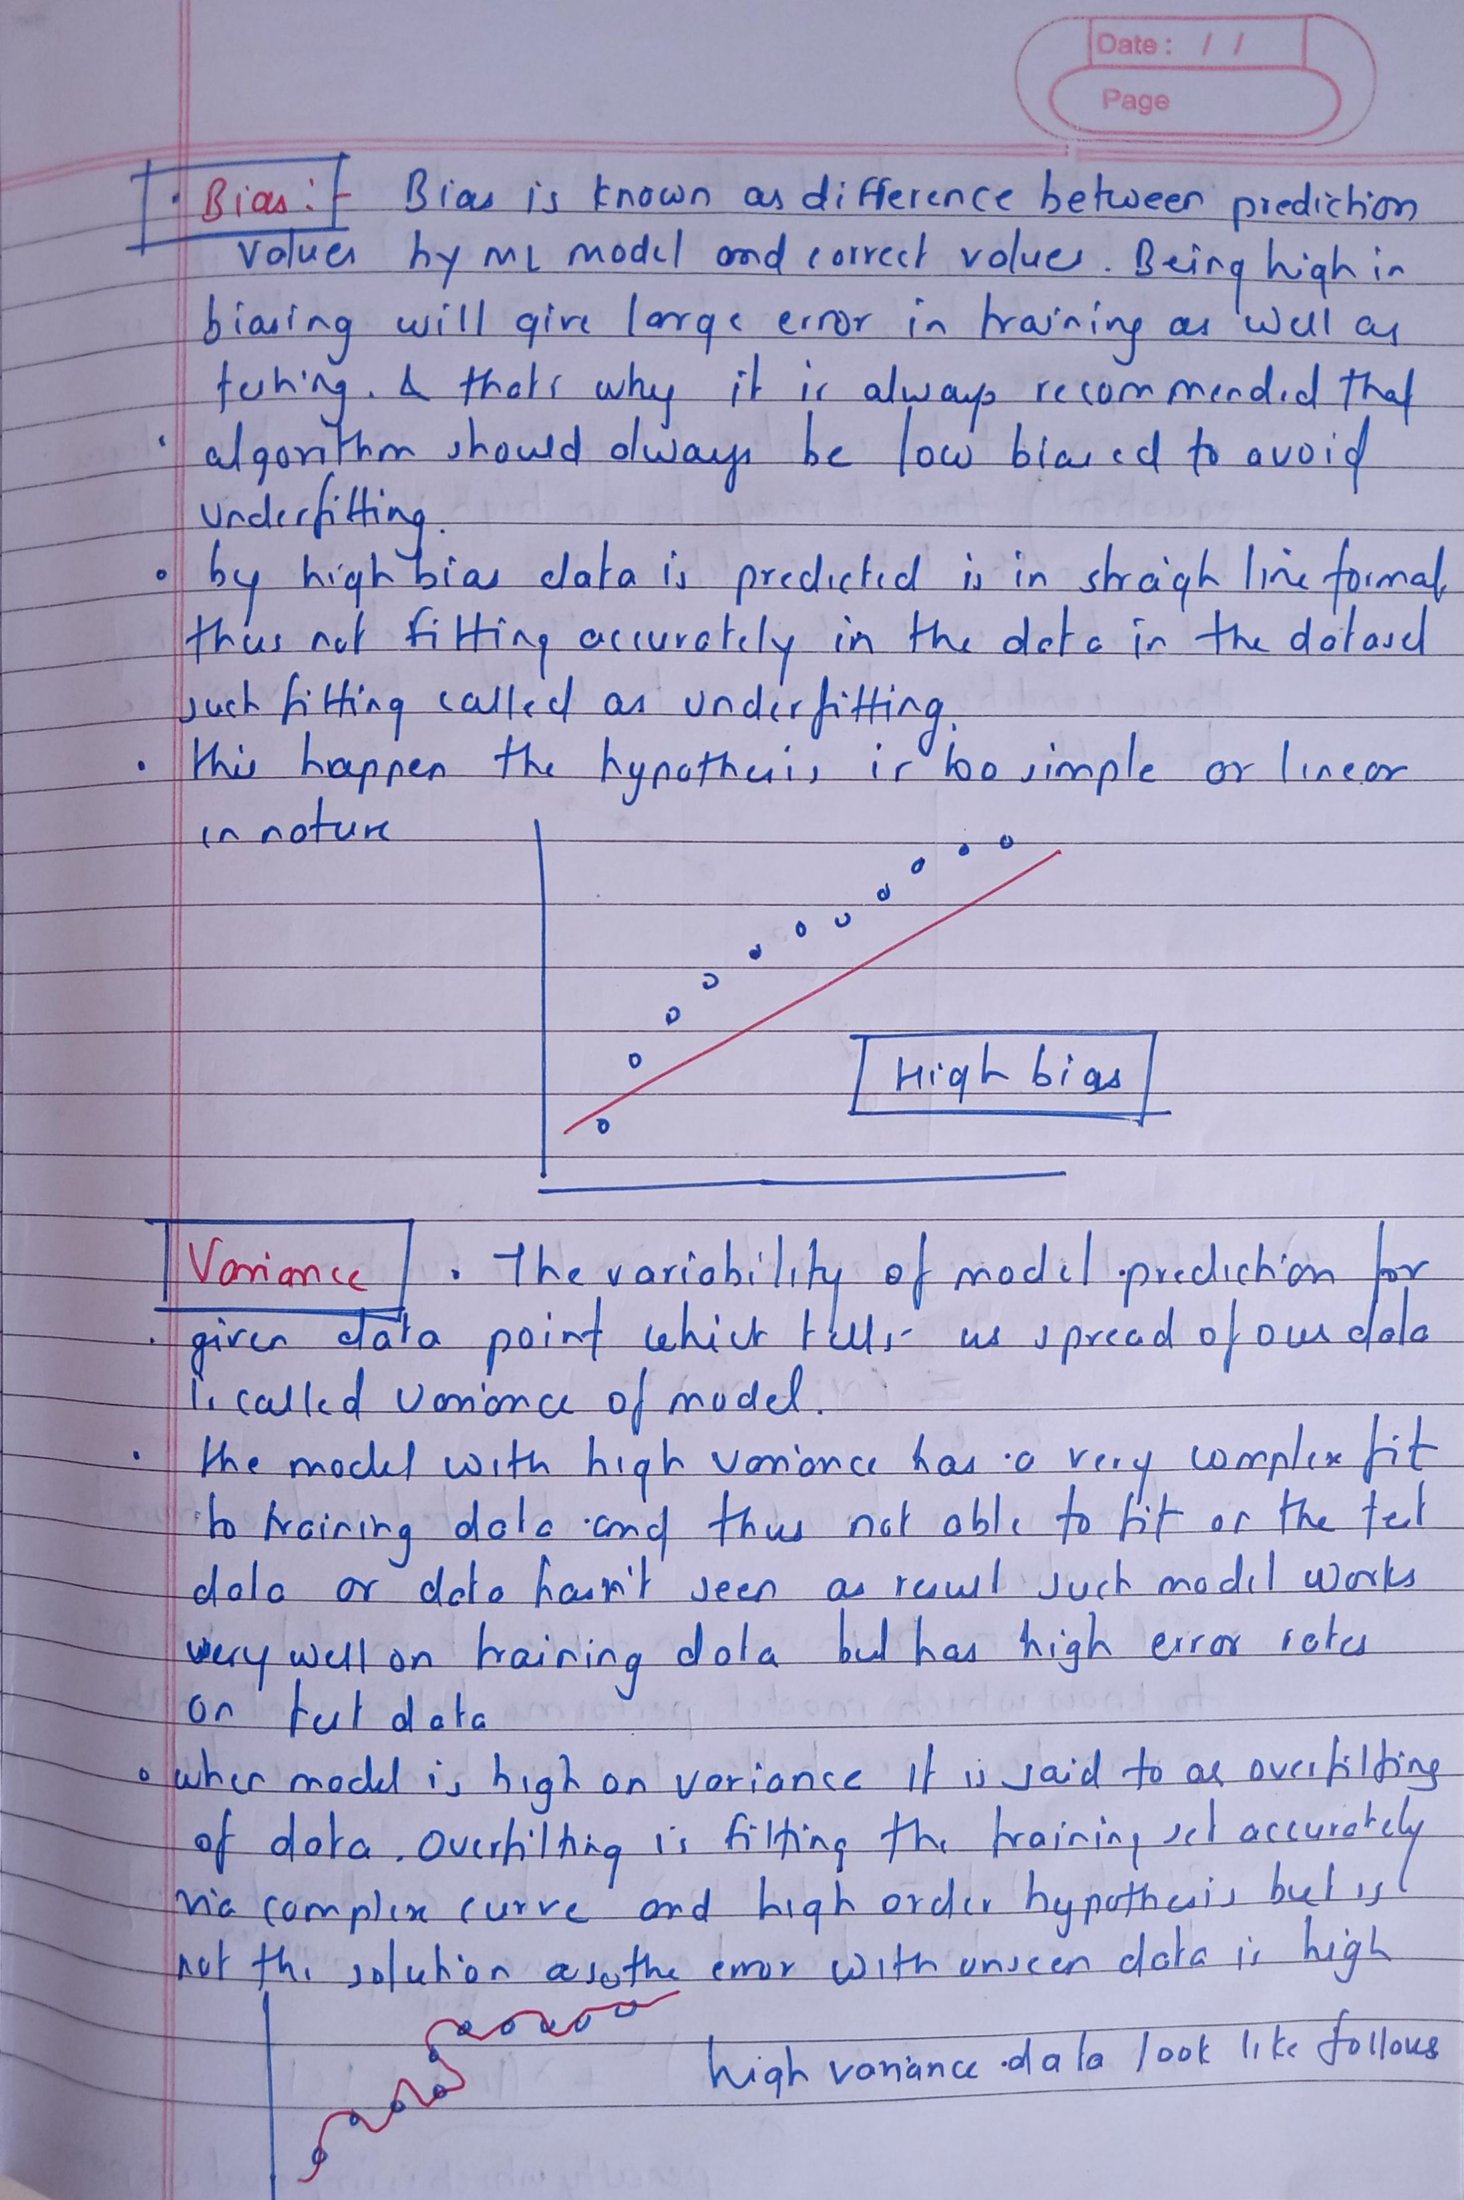 Date : / /
Page
Bias :- Bias is known as difference between prediction
values by ML model and correct values. Being high in
biasing will give large error in training as well as
testing. & thats why it is always recommended that
algorithm should always be low biased to avoid
underfitting.
by high bias data is predicted is in straigh line format,
thus not fitting accurately in the data in the dataset
such fitting called as underfitting.
this happen the hypothesis is too simple or linear
in nature
High bias
Variance . The variability of model prediction for
given data point which tells us spread of our data
is called variance of model.
the model with high variance has a very complex fit
to training data and thus not able to fit on the test
data or data hasn't seen as result such model works
very well on training data but has high error rates
on test data
when model is high on variance it is said to as overfitting
of data. Overfitting is fitting the training set accurately
via complex curve and high order hypothesis but is
not the solution as the error with unseen data is high
high variance data look like follows